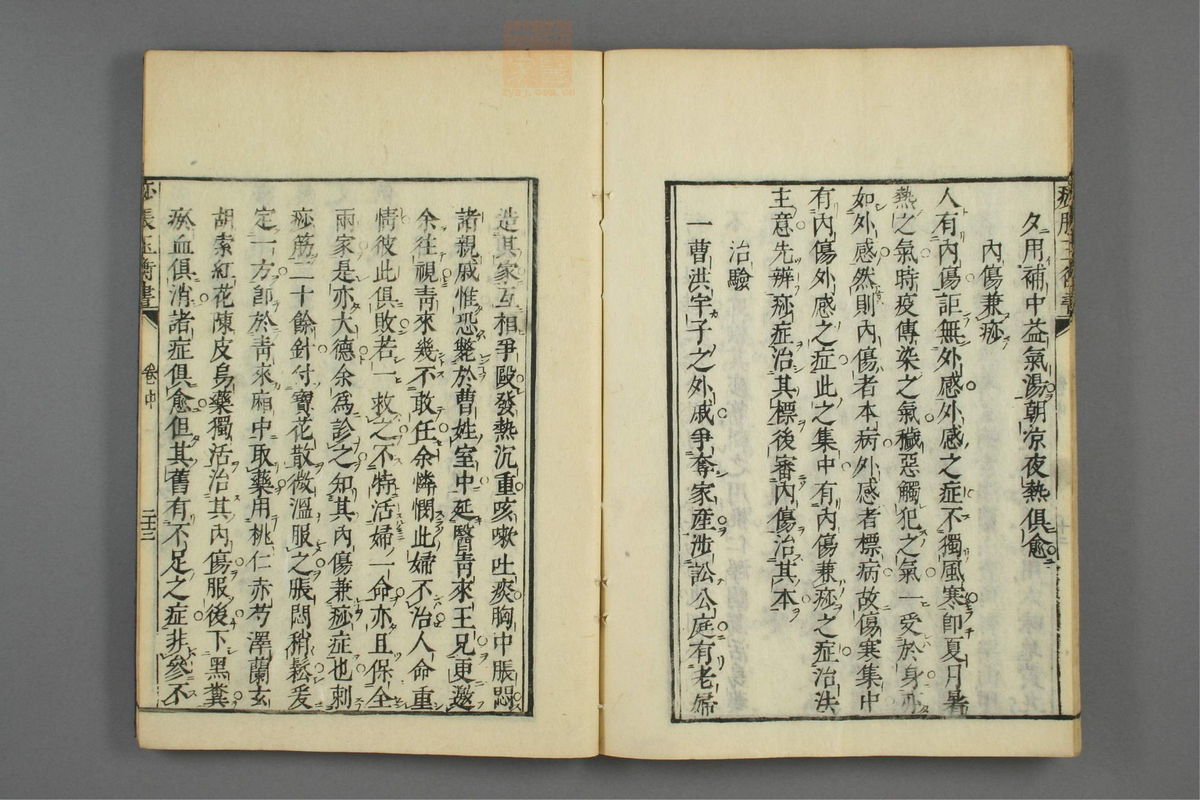 痧脹玉衡書
夕用補中益氣湯朝凉夜熱俱愈
內傷兼痧
人有內傷詎無外感外感之症不獨風寒卽夏月暑
熱之氣時疫傳染之氣穢惡觸犯之氣一受於身亦
如外感然則內傷者本病外感者標病故傷寒集中
有內傷外感之症此之集中有內傷兼痧之症治法
主意先辨痧症治其標後審內傷治其本
治驗
一曹洪宇子之外戚爭奪家産涉訟公庭有老婦
造其家互相爭毆發熱沉重咳嗽吐痰胸中脹悶
諸親戚惟恐斃於曹姓室中延醫靑來王兄更邀
余往視靑來幾不敢任余憐憫此婦不治人命重
情彼此俱敗若一救之不特活婦一命亦且保全
兩家是亦大德余爲診之知其內傷兼痧症也刺
痧筋二十餘針付寶花散微溫服之脹悶稍鬆爰
定一方卽於靑來廂中取藥用桃仁赤芍澤蘭玄
胡索紅花陳皮烏藥獨活治其內傷服後下黑糞
瘀血俱消諸症俱愈但其舊有不足之症非參不
痧脹玉衡書
卷中
二十三